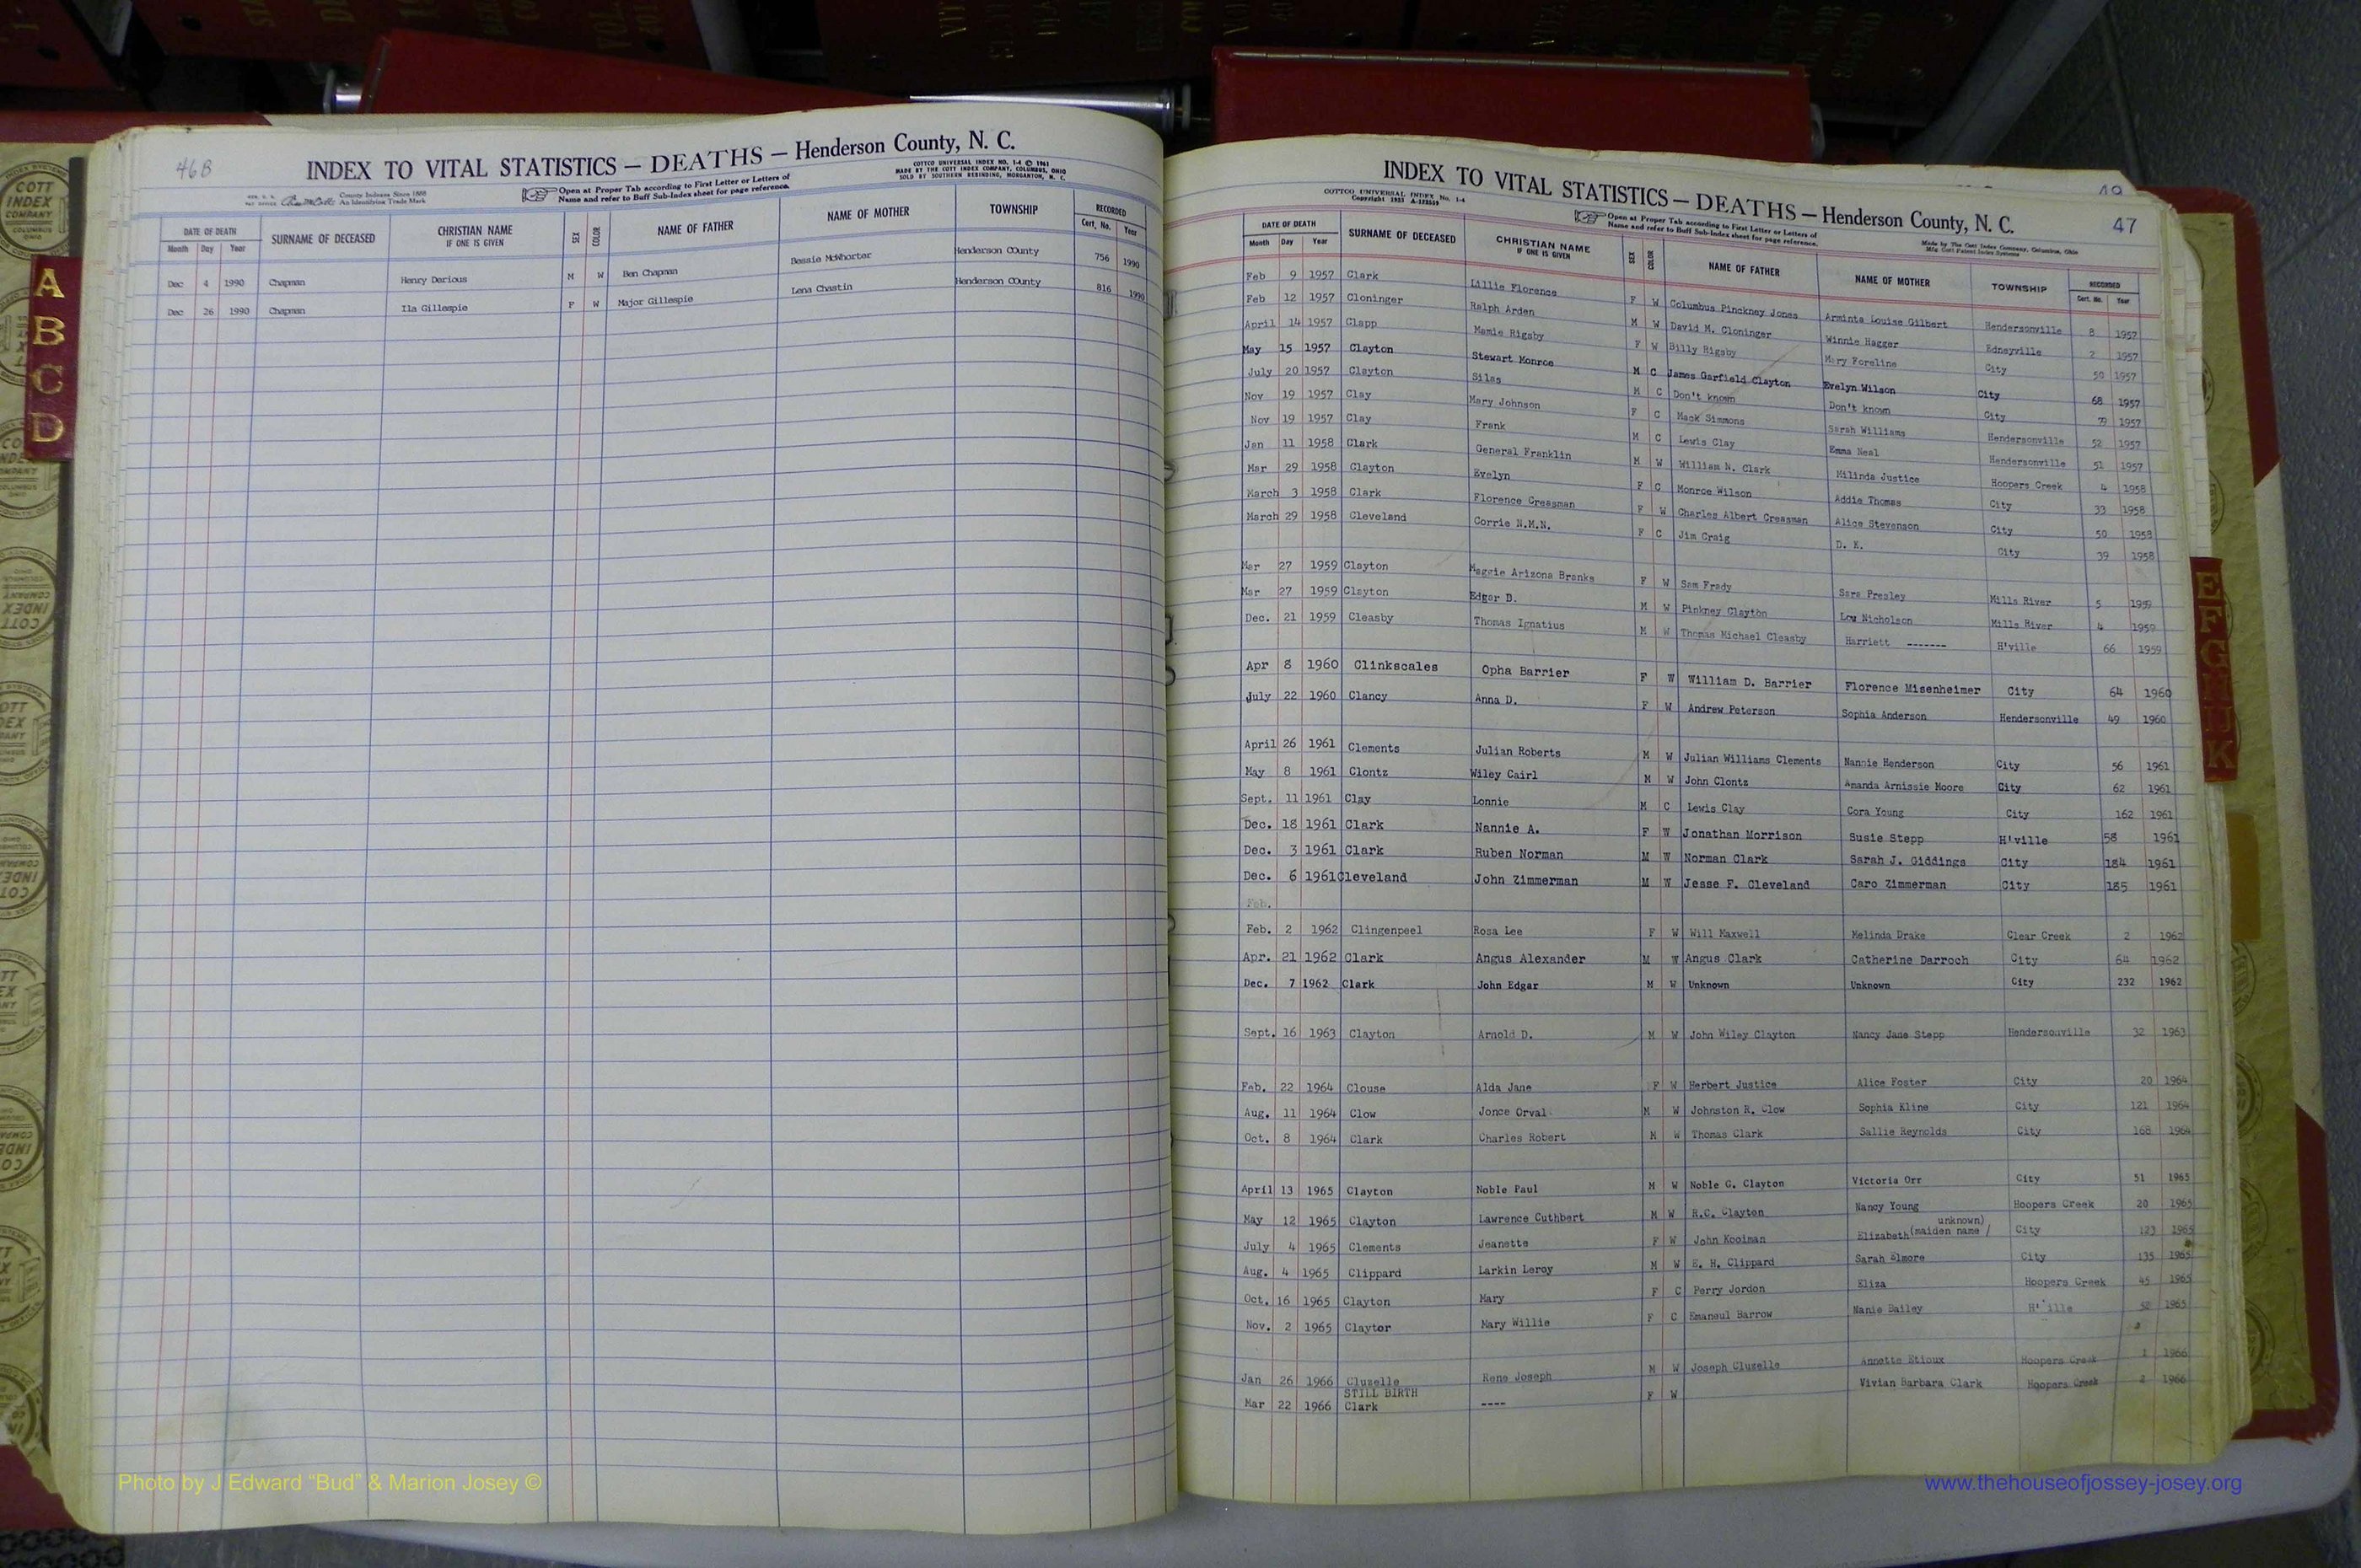 46B
INDEX TO VITAL STATISTICS — DEATHS — Henderson County, N. C.
COTTCO UNIVERSAL INDEX NO. 1-4 © 1961
MADE BY THE COTT INDEX COMPANY, COLUMBUS, OHIO
SOLD BY SOUTHERN REBINDING, MORGANTON, N. C.
County Indexes Since 1888
An Identifying Trade Mark
Open at Proper Tab according to First Letter or Letters of
Name and refer to Buff Sub-Index sheet for page reference.
DATE OF DEATH SURNAME OF DECEASED CHRISTIAN NAME IF ONE IS GIVEN SEX COLOR NAME OF FATHER NAME OF MOTHER TOWNSHIP RECORDED
Month Day Year Cert. No. Year
Dec 4 1990 Chapman Henry Darious M W Ben Chapman Bessie McWhorter Henderson COunty 756 1990
Dec 26 1990 Chapman Ila Gillespie F W Major Gillespie Lena Chastin Henderson COunty 816 1990
A
B
C
D
COTT
INDEX
COMPANY
COLUMBUS
OHIO
47
INDEX TO VITAL STATISTICS — DEATHS — Henderson County, N. C.
COTTCO UNIVERSAL INDEX No. 1-4
Open at Proper Tab according to First Letter or Letters of
Name and refer to Buff Sub-Index sheet for page reference.
Made by The Cott Index Company, Columbus, Ohio
DATE OF DEATH SURNAME OF DECEASED CHRISTIAN NAME IF ONE IS GIVEN SEX COLOR NAME OF FATHER NAME OF MOTHER TOWNSHIP RECORDED
Month Day Year Cert. No. Year
Feb 9 1957 Clark Lillie Florence F W Columbus Pinckney Jones Arminta Louise Gilbert Hendersonville 8 1957
Feb 12 1957 Cloninger Ralph Arden M W David M. Cloninger Winnie Hagger Edneyville 2 1957
April 14 1957 Clapp Mamie Rigsby F W Billy Rigsby Mary Foreline City 50 1957
May 15 1957 Clayton Stewart Monroe M C James Garfield Clayton Evelyn Wilson City 68 1957
July 20 1957 Clayton Silas M C Don't known Don't known City 79 1957
Nov 19 1957 Clay Mary Johnson F C Mack Simmons Sarah Williams Hendersonville 52 1957
Nov 19 1957 Clay Frank M C Lewis Clay Emma Neal Hendersonville 51 1957
Jan 11 1958 Clark General Franklin M W William N. Clark Milinda Justice Hoopers Creek 4 1958
Mar 29 1958 Clayton Evelyn F C Monroe Wilson Addie Thomas City 33 1958
March 3 1958 Clark Florence Creasman F W Charles Albert Creasman Alice Stevenson City 50 1958
March 29 1958 Cleveland Corrie N.M.N. F C Jim Craig D. K. City 39 1958
Mar 27 1959 Clayton Maggie Arizona Branks F W Sam Frady Sara Presley Mills River 5 1959
Mar 27 1959 Clayton Edgar B. M W Pinkney Clayton Lou Nicholson Mills River 4 1959
Dec. 21 1959 Cleasby Thomas Ignatius M W Thomas Michael Cleasby Harriett ------- H'ville 66 1959
Apr 8 1960 Clinkscales Opha Barrier F W William D. Barrier Florence Misenheimer City 64 1960
July 22 1960 Clancy Anna D. F W Andrew Peterson Sophia Anderson Hendersonville 49 1960
April 26 1961 Clements Julian Roberts M W Julian Williams Clements Nannie Henderson City 56 1961
May 8 1961 Clontz Wiley Cairl M W John Clontz Amanda Arnissie Moore City 62 1961
Sept. 11 1961 Clay Lonnie M C Lewis Clay Cora Young City 162 1961
Dec. 18 1961 Clark Nannie A. F W Jonathan Morrison Susie Stepp H'ville 58 1961
Dec. 3 1961 Clark Ruben Norman M W Norman Clark Sarah J. Giddings City 184 1961
Dec. 6 1961 Cleveland John Zimmerman M W Jesse F. Cleveland Caro Zimmerman City 185 1961
Feb.
Feb. 2 1962 Clingenpeel Rosa Lee F W Will Maxwell Melinda Drake Clear Creek 2 1962
Apr. 21 1962 Clark Angus Alexander M W Angus Clark Catherine Darroch City 64 1962
Dec. 7 1962 Clark John Edgar M W Unknown Unknown City 232 1962
Sept. 16 1963 Clayton Arnold D. M W John Wiley Clayton Nancy Jane Stepp Hendersonville 32 1963
Feb. 22 1964 Clouse Alda Jane F W Herbert Justice Alice Foster City 20 1964
Aug. 11 1964 Clow Jonce Orval M W Johnston R. Clow Sophia Kline City 121 1964
Oct. 8 1964 Clark Charles Robert M W Thomas Clark Sallie Reynolds City 168 1964
April 13 1965 Clayton Noble Paul M W Noble G. Clayton Victoria Orr City 51 1965
May 12 1965 Clayton Lawrence Cuthbert M W R.C. Clayton Nancy Young Hoopers Creek 20 1965
July 4 1965 Clements Jeanette F W John Kooiman Elizabeth (maiden name / unknown) City 123 1965
Aug. 4 1965 Clippard Larkin Leroy M W E. H. Clippard Sarah Elmore City 135 1965
Oct. 16 1965 Clayton Mary F C Perry Jordon Eliza Hoopers Creek 45 1965
Nov. 2 1965 Claytor Mary Willie F C Emaneul Barrow Nanie Bailey 52 1965
Jan 26 1966 Cluzelle Rene Joseph M W Joseph Cluzelle Annette Etioux Hoopers Creek 1 1966
STILL BIRTH
Mar 22 1966 Clark ---- F W Vivian Barbara Clark Hoopers Creek 2 1966
E
F
G
K
Photo by J Edward “Bud” & Marion Josey ©
www.thehouseofjossey-josey.org